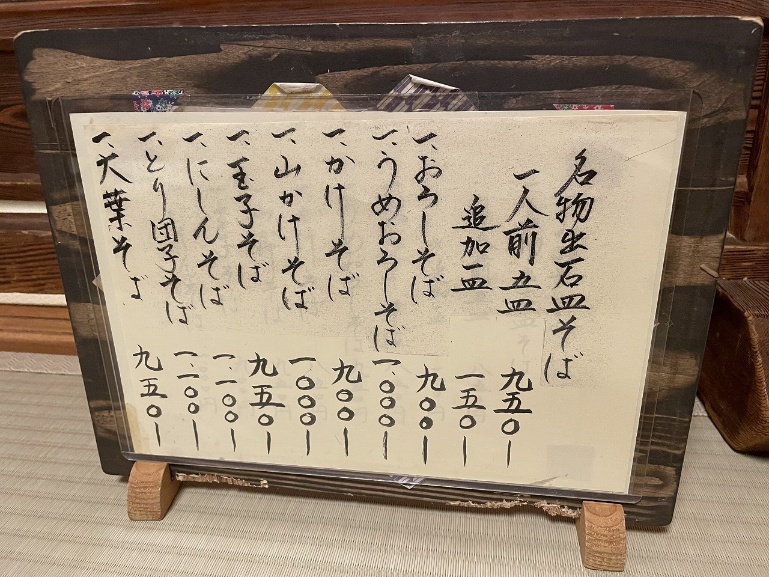 名物出石皿そば
一人前 五皿 九五〇ー
追加一皿 一五〇ー
一、おろしそば 九〇〇ー
一、うめおろしそば 一、〇〇〇ー
一、かけそば 九〇〇ー
一、山かけそば 一、〇〇〇ー
一、玉子そば 九五〇ー
一、にしんそば 一、一〇〇ー
一、とり団子そば 一、一〇〇ー
一、大葉そば 九五〇ー